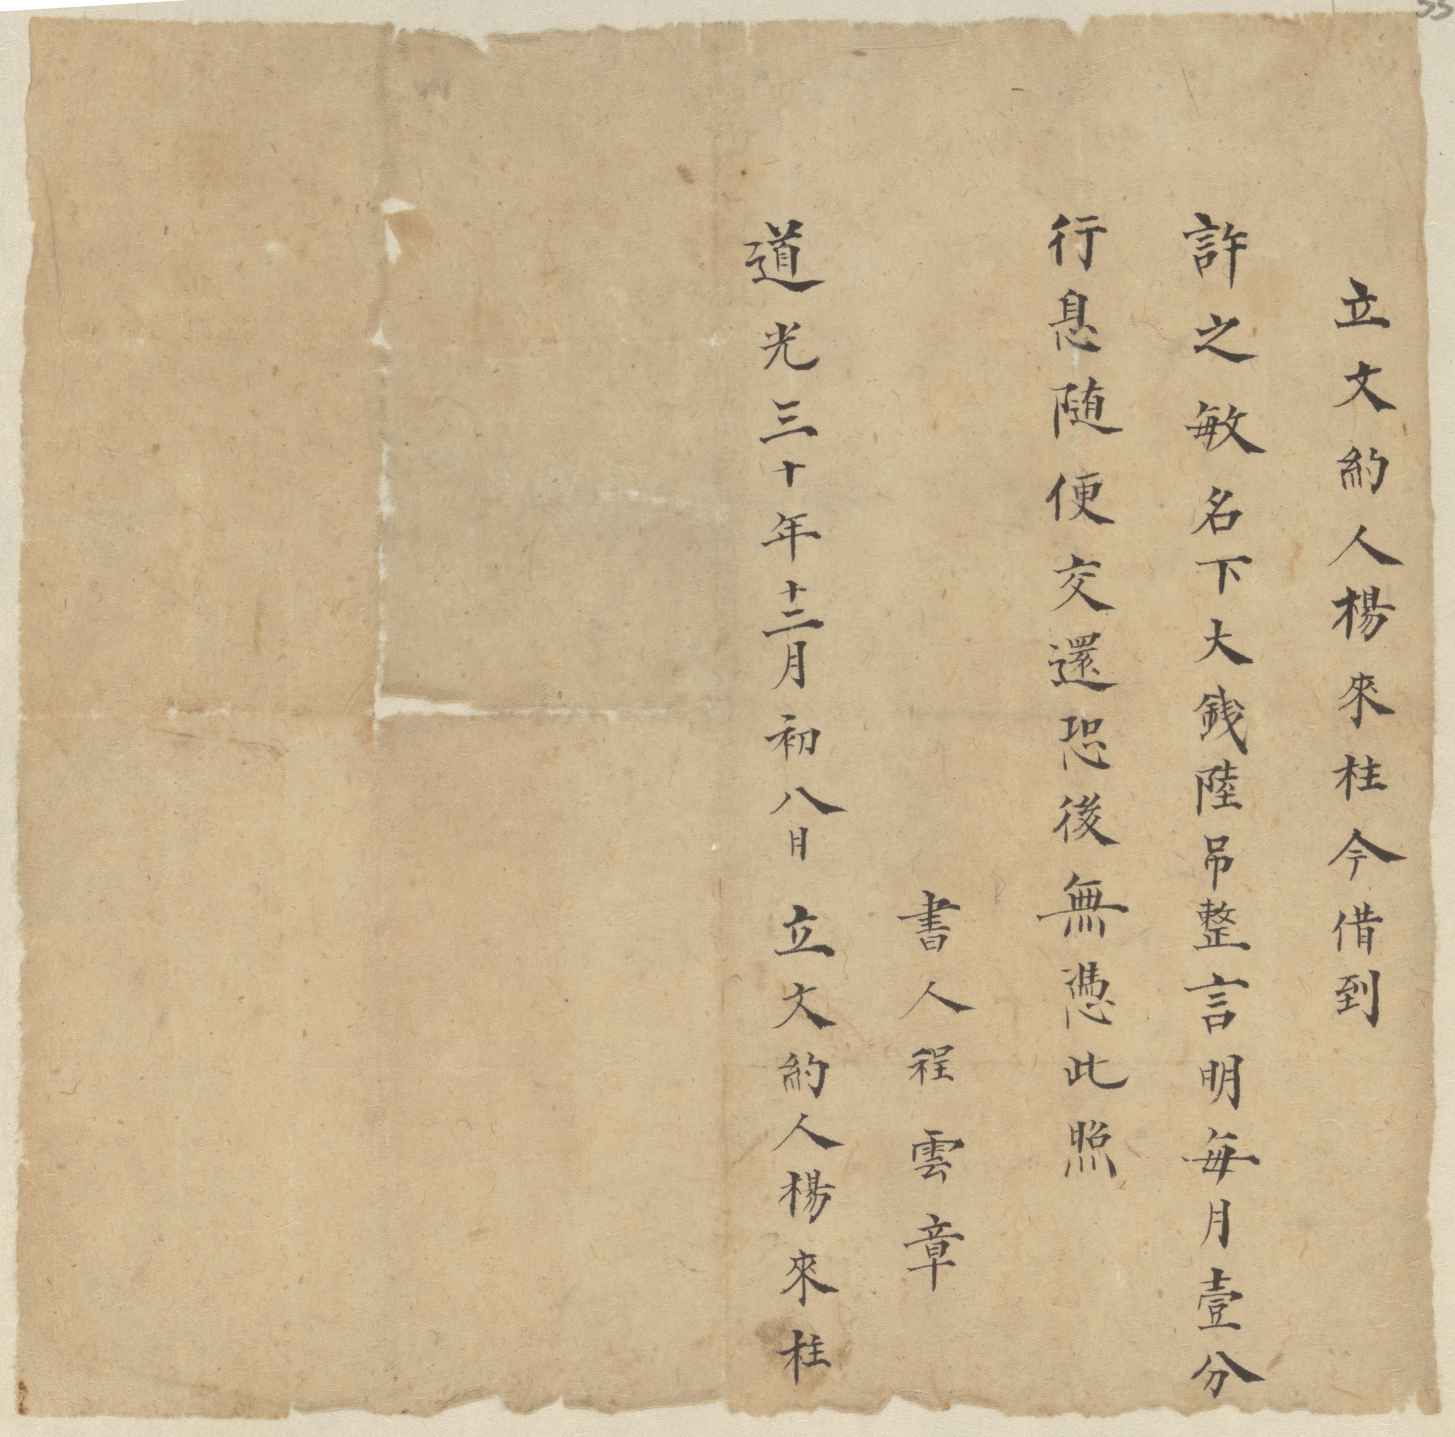 立文約人楊來柱今借到
許之敏名下大銭陸吊整言明每月壹分
行息随便交還恐後無憑此照
書人程雲章
道光三十年十二月初八日 立文約人楊來柱